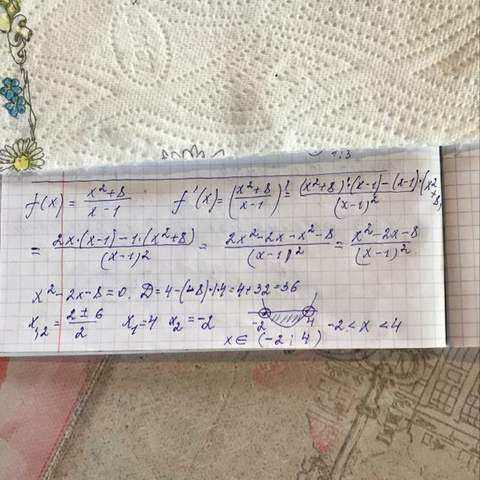 1:3
f(x) = \frac{x²+8}{x-1} f'(x) = (\frac{x²+8}{x-1})' = \frac{(x²+8)'·(x-1)-(x-1)'(x²+8)}{(x-1)²}
= \frac{2x·(x-1)-1·(x²+8)}{(x-1)²} = \frac{2x²-2x-x²-8}{(x-1)²} = \frac{x²-2x-8}{(x-1)²}
x²-2x-8=0. D=4-(-8)·1·4=4+32=36
x₁,₂ = \frac{2±6}{2} x₁=4 x₂=-2 -2 4 -2<x<4
x∈(-2; 4)